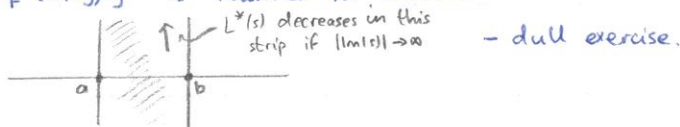 L*(s) decreases in this
strip if |Im(s)| → ∞
- dull exercise.
a
b